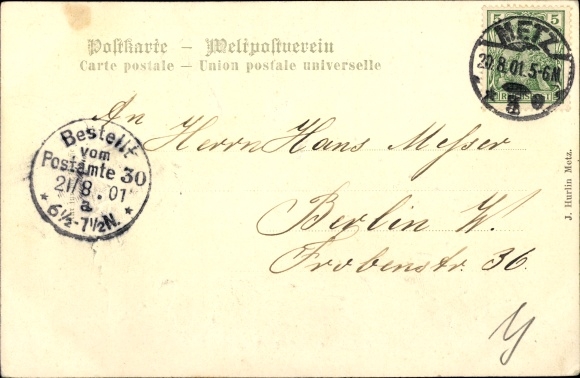 Postkarte – Weltpostverein
Carte postale – Union postale universelle
5 5
METZ
20.8.01.5-6N
* a *
An
Herrn Hans Messer
Berlin W.
Frobenstr. 36.
Bestellt
vom
Postamte 30
21/8.01
a
* 6½-7½N. *
J. Hurlin Metz.